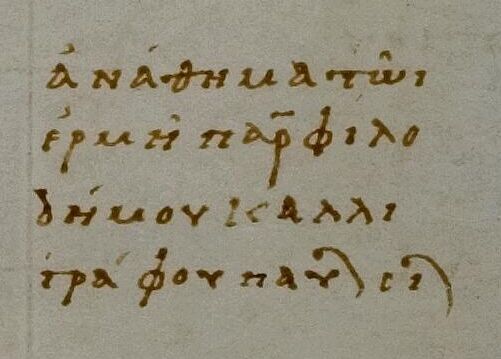 ἀνάθημα τῶι
ἑρμῆ παρ φιλο
δήμου καλλι
γράφου παυ σι